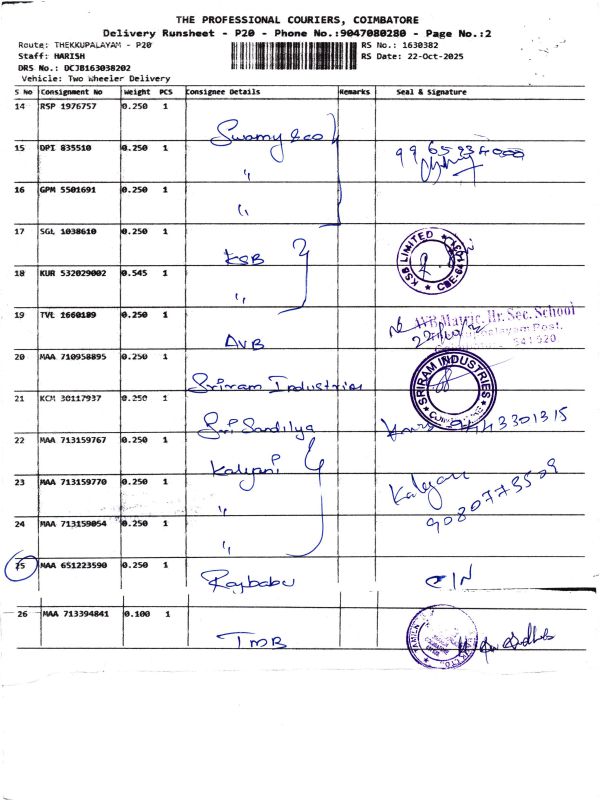 THE PROFESSIONAL COURIERS, COIMBATORE
Delivery Runsheet - P20 - Phone No.:9047080280 - Page No.:2
Route: THEKKUPALAYAM - P20 RS No.: 1630382
Staff: HARISH RS Date: 22-Oct-2025
DRS No.: DCJB163038202
Vehicle: Two Wheeler Delivery
S No Consignment No Weight PCS Consignee Details Remarks Seal & Signature
14 RSP 1976757 0.250 1 Swamy & co
15 DPI 835510 0.250 1 〃
16 GPM 5501691 0.250 1 〃
17 SGL 1038610 0.250 1 KSB KSB LIMITED
18 KUR 532029002 0.545 1 〃
19 TVL 1660189 0.250 1 AVB AVB Matric. Hr. Sec. School
Post.
641 020
20 MAA 710958895 0.250 1 Sriram Industries SRIRAM INDUSTRIES
21 KCM 30117937 0.250 1 Sri Sandilya
22 MAA 713159767 0.250 1 Kalyani
23 MAA 713159770 0.250 1 〃 Kalyani
9080773509
24 MAA 713159054 0.250 1 〃
25 MAA 651223590 0.250 1 Rajbabu C/N
26 MAA 713394841 0.100 1 TMB